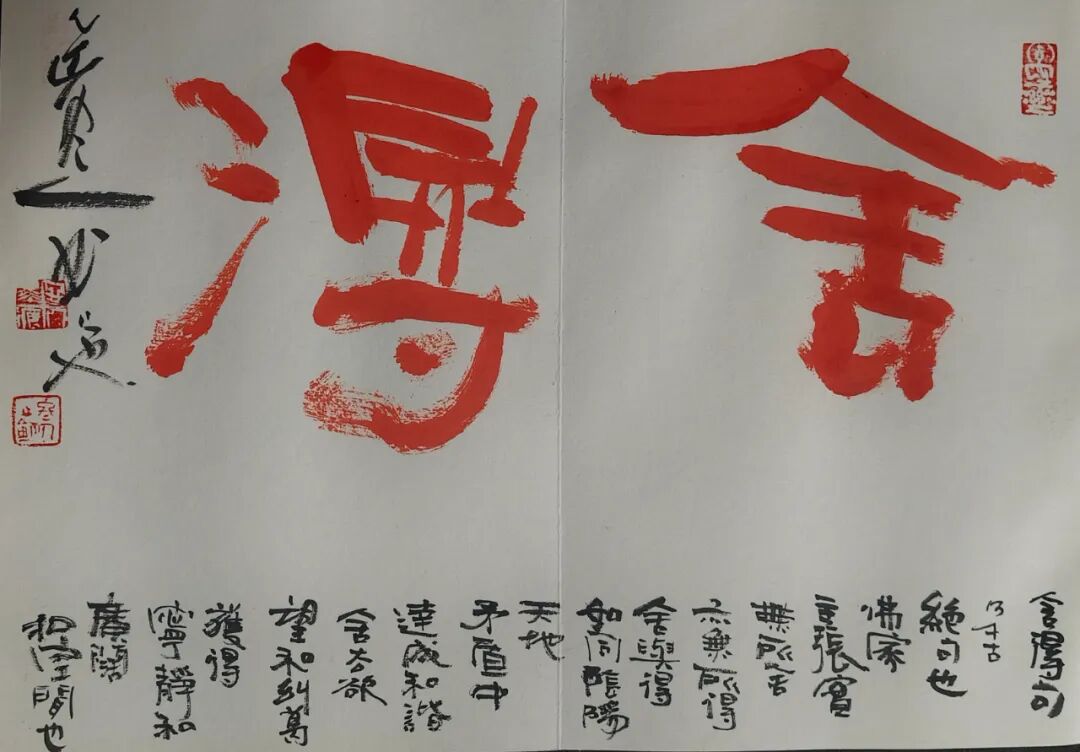 舍得
舍得句
乃千古
絕句也
佛家
主張實
無所舍
亦無所得
舍與得
如同陰陽
天地
矛盾中
達成和諧
舍去欲
望和糾葛
獲得
寧靜和
廣闊
空間也